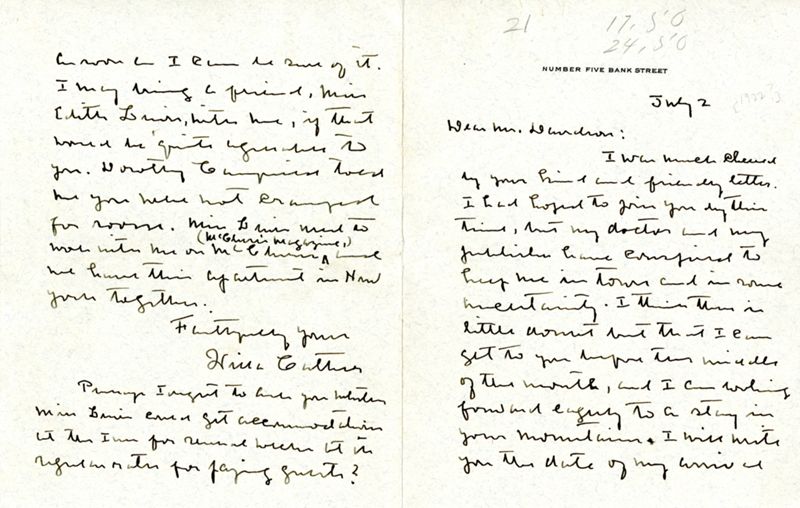 21 17.50
24.50
NUMBER FIVE BANK STREET
July 2
[1922?]
Dear Mr. Davidson:
I was much cheered
by your kind and friendly letter.
I had hoped to join you by this
time, but my doctor and my
publisher have conspired to
keep me in town and in some
uncertainty. I think there is
little doubt but that I can
get to you before the middle
of the month, and I am looking
forward eagerly to a stay in
your mountains. I will write
you the date of my arrival
as soon as I can be sure of it.
I may bring a friend, Miss
Edith Lewis, with me, if that
would be quite agreeable to
you. Dorothy Canfield told
me you were not cramped
for rooms. Miss Lewis used to
(McClure's Magazine,)
work with me on McClure's ^ and
we have this apartment in New
York together.
Faithfully yours
Willa Cather
Perhaps I ought to ask you whether
Miss Lewis could get accommodations
at the Inn for several weeks at the
regular rates for paying guests?